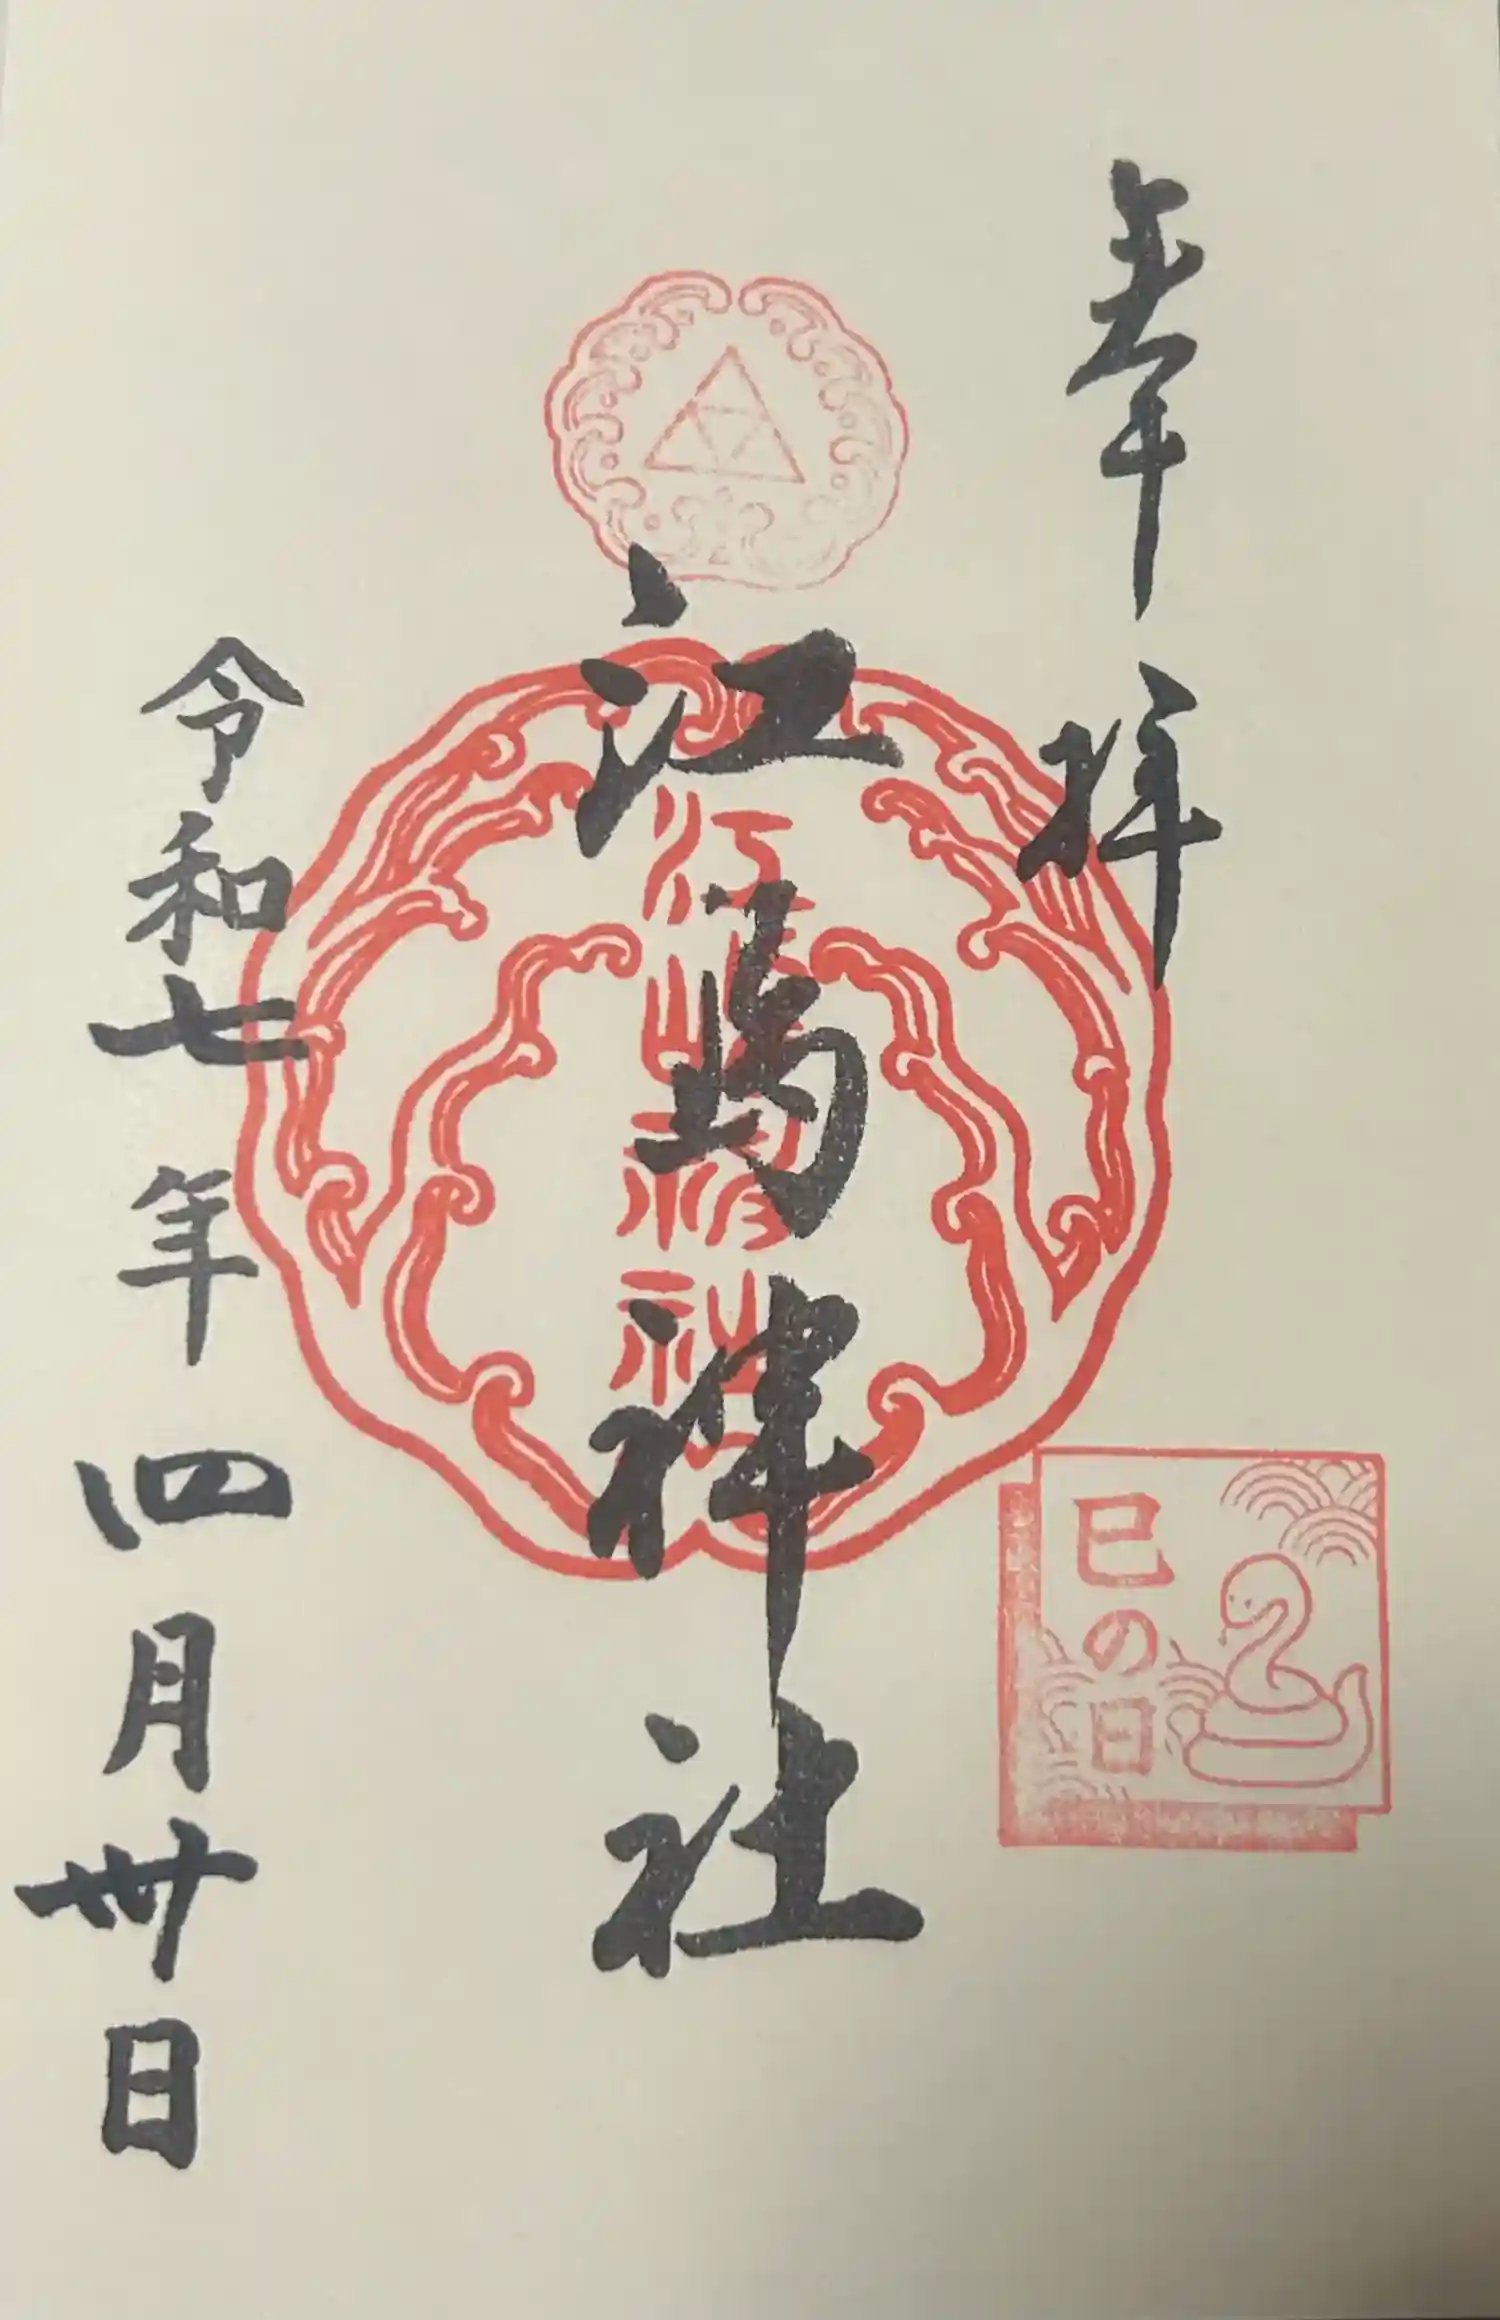 奉拝
江嶋神社
江島神社
巳の日
令和七年四月卅日